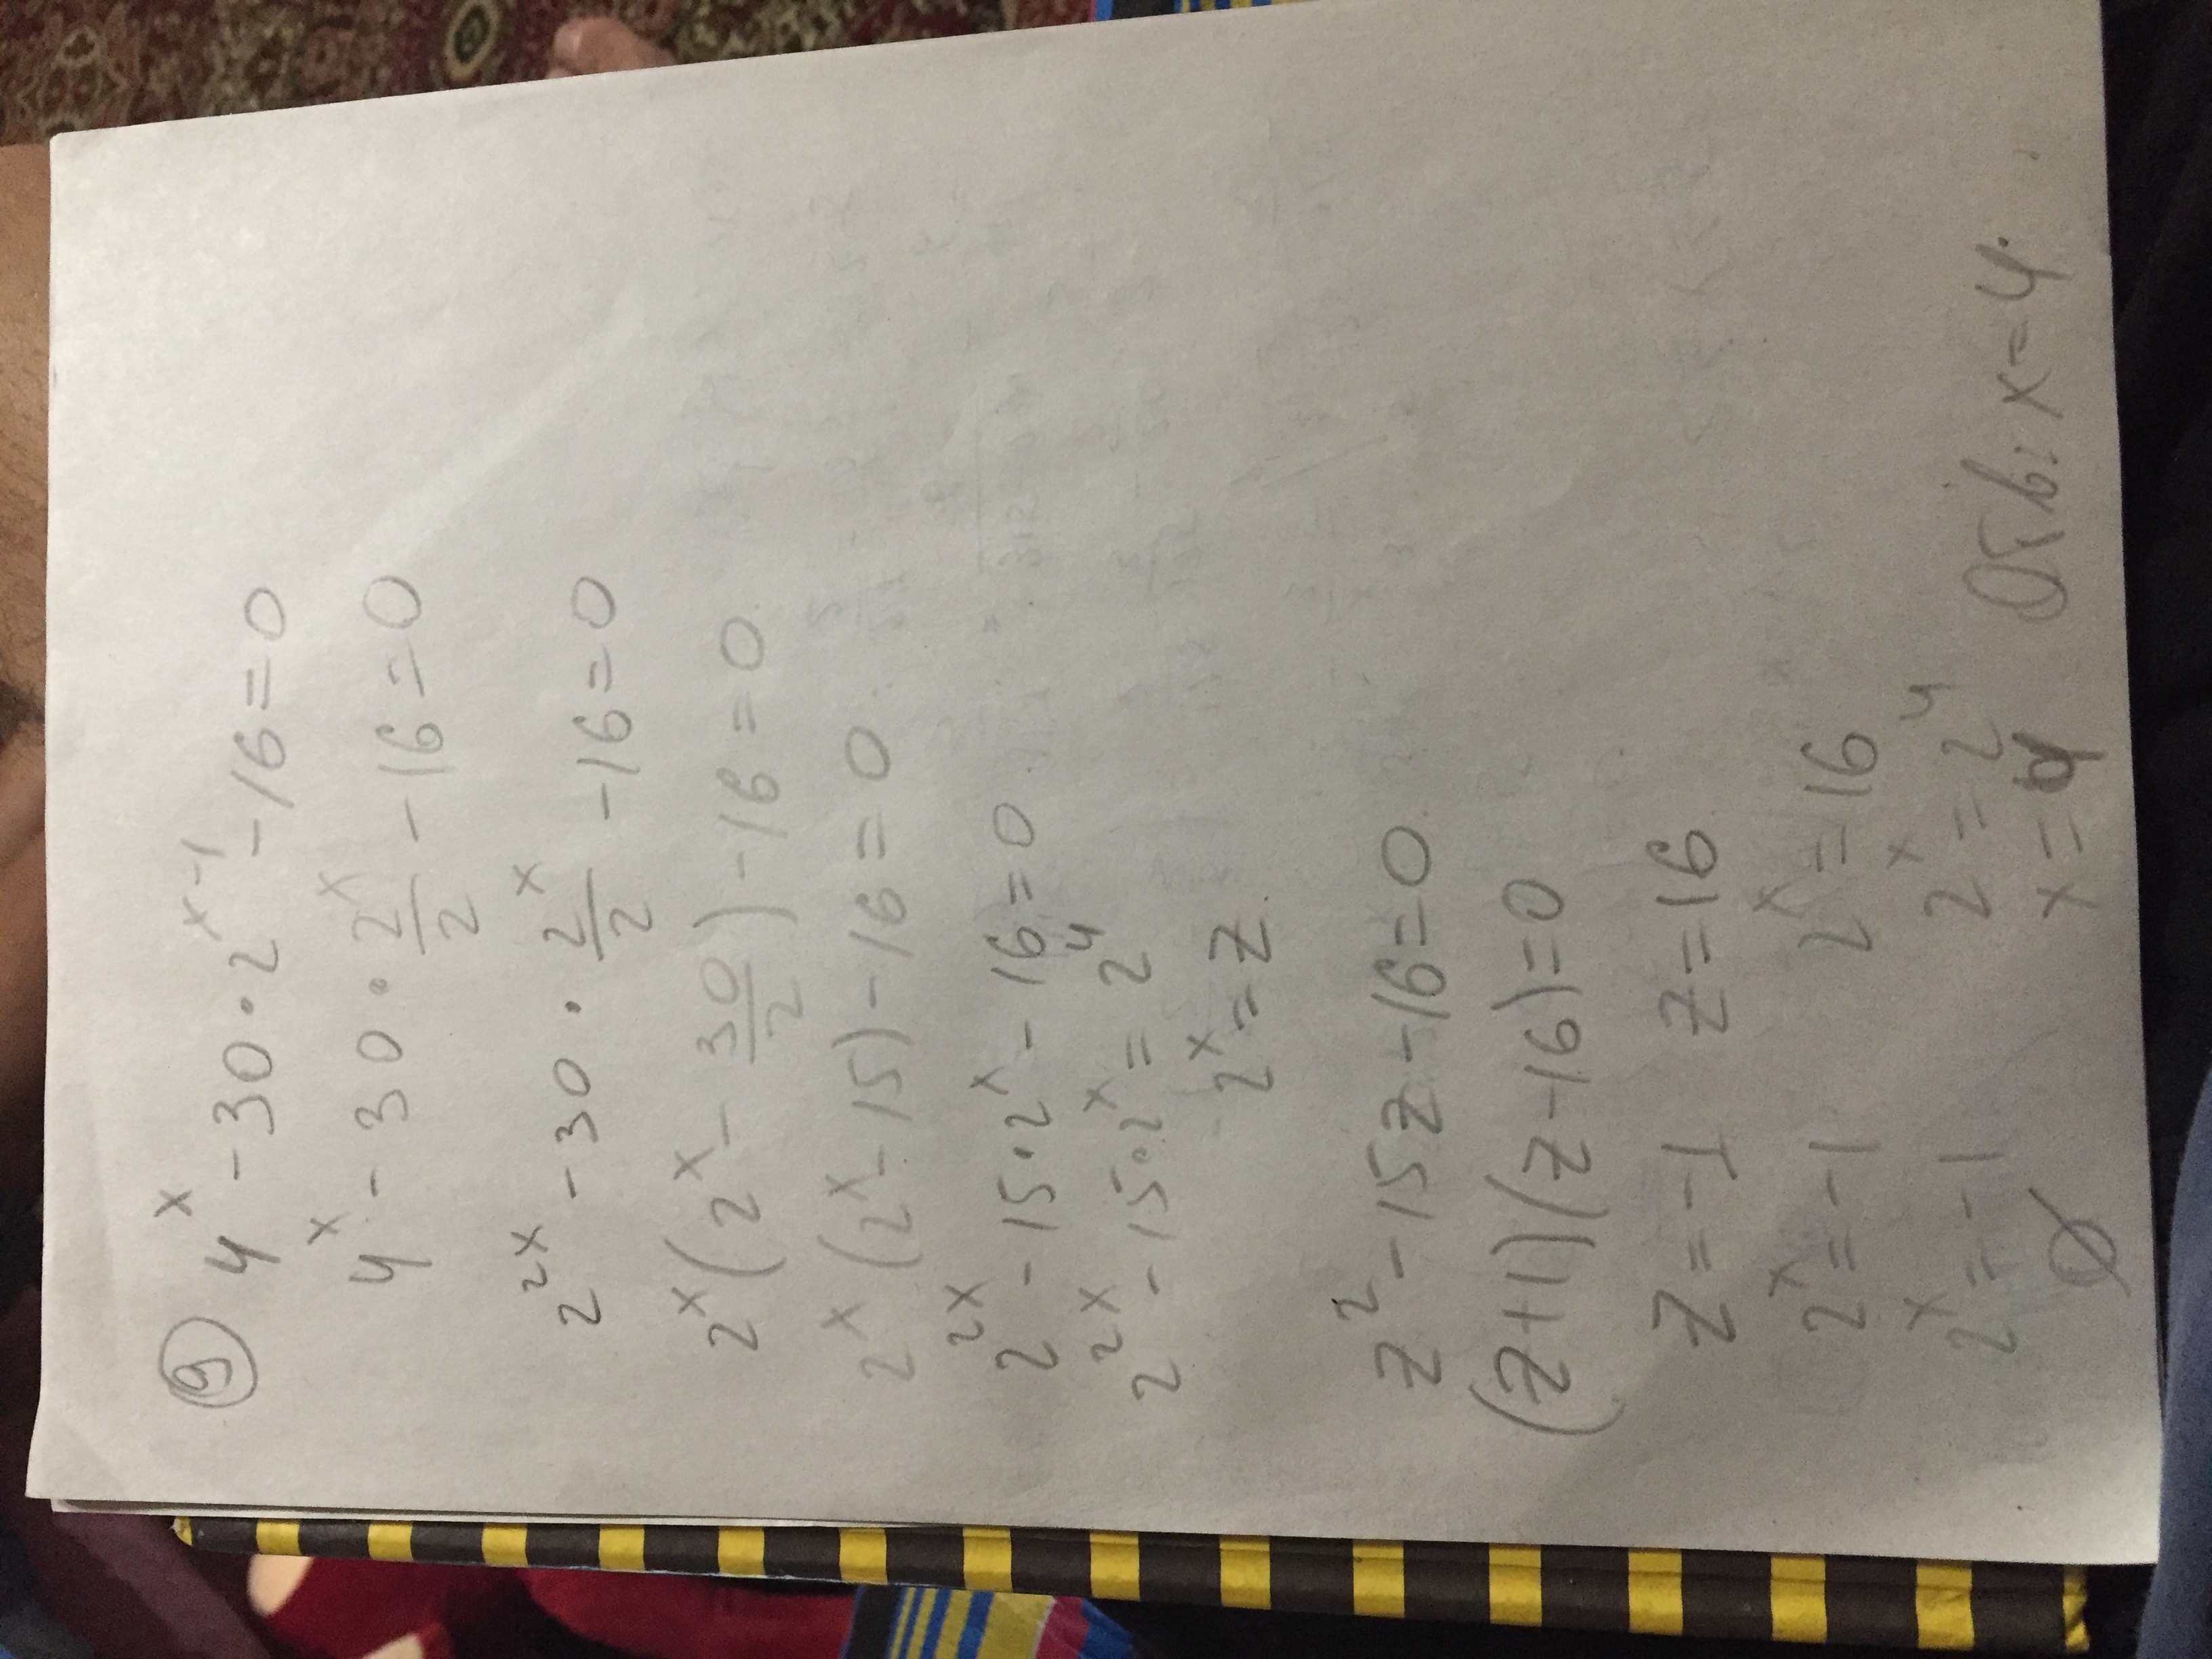 ⑨ 4^x - 30 · 2^(x-1) - 16 = 0
4^x - 30 · 2^x/2 - 16 = 0
2^(2x) - 30 · 2^x/2 - 16 = 0
2^x (2^x - 30/2) - 16 = 0
2^x (2^x - 15) - 16 = 0
2^(2x) - 15 · 2^x - 16 = 0
2^(2x) - 15 · 2^x = 2^4
2^x = z.
z^2 - 15z - 16 = 0
(z+1)(z-16) = 0
z = -1 z = 16
2^x = -1 2^x = 16
2^x = -1 2^x = 2^4
∅ x = 4 Отв: x = 4.